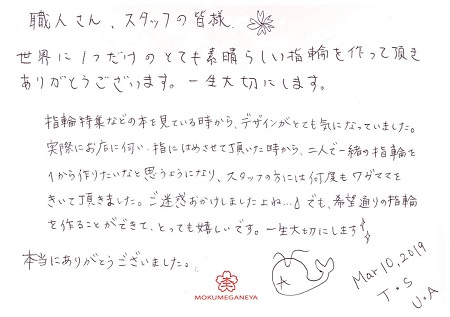 職人さん、スタッフの皆様
世界に1つだけのとても素晴らしい指輪を作って頂き
ありがとうございます。一生大切にします。
指輪特集などの本を見ている時から、デザインがとても気になっていました。
実際にお店に伺い、指にはめさせて頂いた時から、二人で一緒の指輪を
1から作りたいなと思うようになり、スタッフの方には何度もワガママを
きいて頂きました。ご迷惑おかけしましたよね…! でも、希望通りの指輪
を作ることができて、とっても嬉しいです。一生大切にします
本当にありがとうございました。
MOKUMEGANEYA
Mar 10, 2019
T・S
U・A